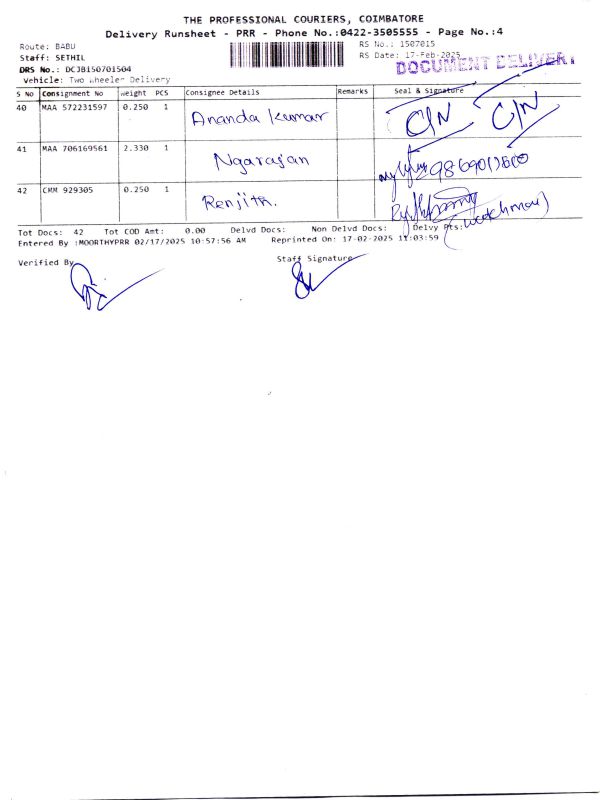 THE PROFESSIONAL COURIERS, COIMBATORE
Delivery Runsheet - PRR - Phone No.:0422-3505555 - Page No.:4
Route: BABU
RS No.: 1507015
Staff: SETHIL
RS Date: 17-Feb-2025
DOCUMENT DELIVERY
DRS No.: DCJB150701504
Vehicle: Two Wheeler Delivery
S No Consignment No Weight PCS Consignee Details Remarks Seal & Signature
40 MAA 572231597 0.250 1 Ananda Kumar C/N C/N
41 MAA 706169561 2.330 1 Ngarajan
42 CMM 929305 0.250 1 Renjith. (watchman)
Tot Docs: 42 Tot COD Amt: 0.00 Delvd Docs: Non Delvd Docs: Delvy Pts:
Entered By :MOORTHYPRR 02/17/2025 10:57:56 AM Reprinted On: 17-02-2025 11:03:59
Verified By
Staff Signature